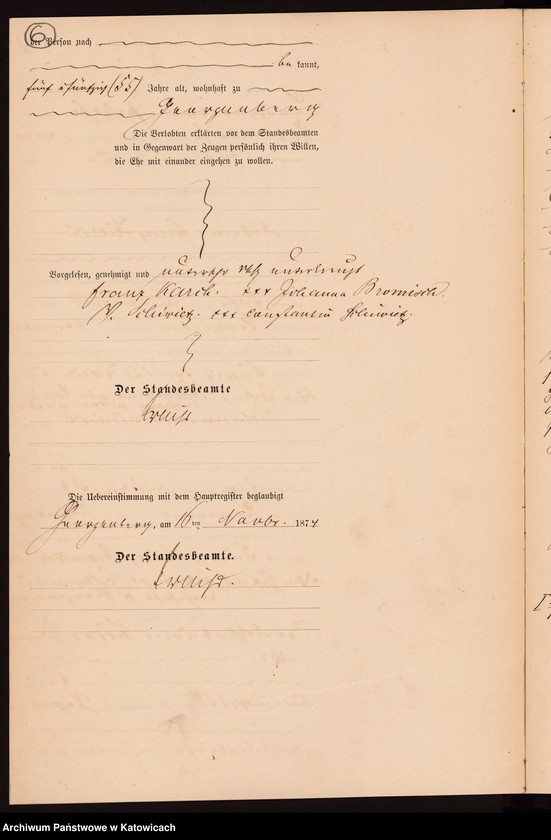 6
der Person nach
be kannt,
fünf u fünfzig (55) Jahre alt, wohnhaft zu
Georgenberg
Die Verlobten erklärten vor dem Standesbeamten
und in Gegenwart der Zeugen persönlich ihren Willen,
die Ehe mit einander eingehen zu wollen.
Vorgelesen, genehmigt und
Franz Karch. xxx Johanna Bromisch.
V. xxx Constantin
Der Standesbeamte
Die Uebereinstimmung mit dem Hauptregister beglaubigt
Georgenberg, am 16ten Novbr. 1874
Der Standesbeamte.
Archiwum Państwowe w Katowicach